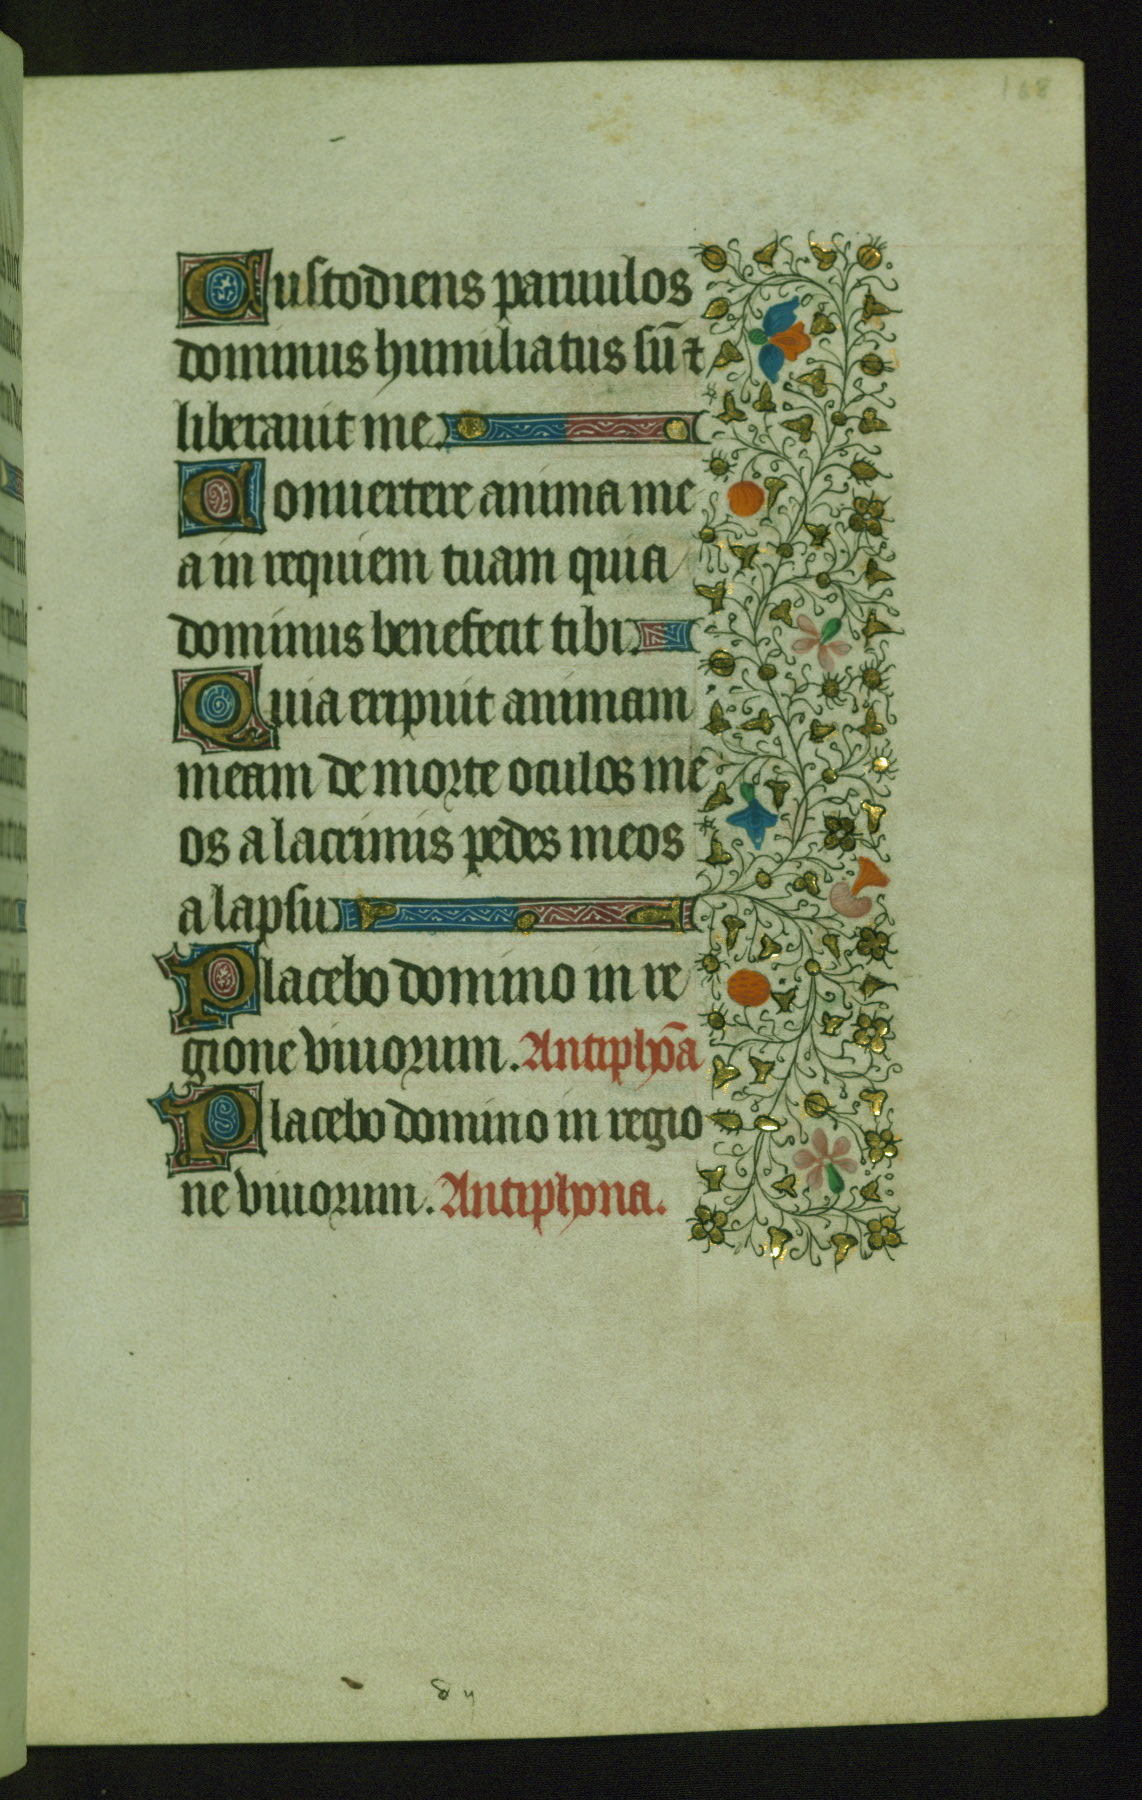 Custodiens paruulos
dominus humiliatus sũ ⁊
liberauit me.
Conuertere anima me
a in requiem tuam quia
dominus benefecit tibi.
Quia eripuit animam
meam de morte oculos me
os a lacrimis pedes meos
a lapsu
Placebo domino in re
gione viuorum. Antiphõa
Placebo domino in regio
ne viuorum. Antiphona.